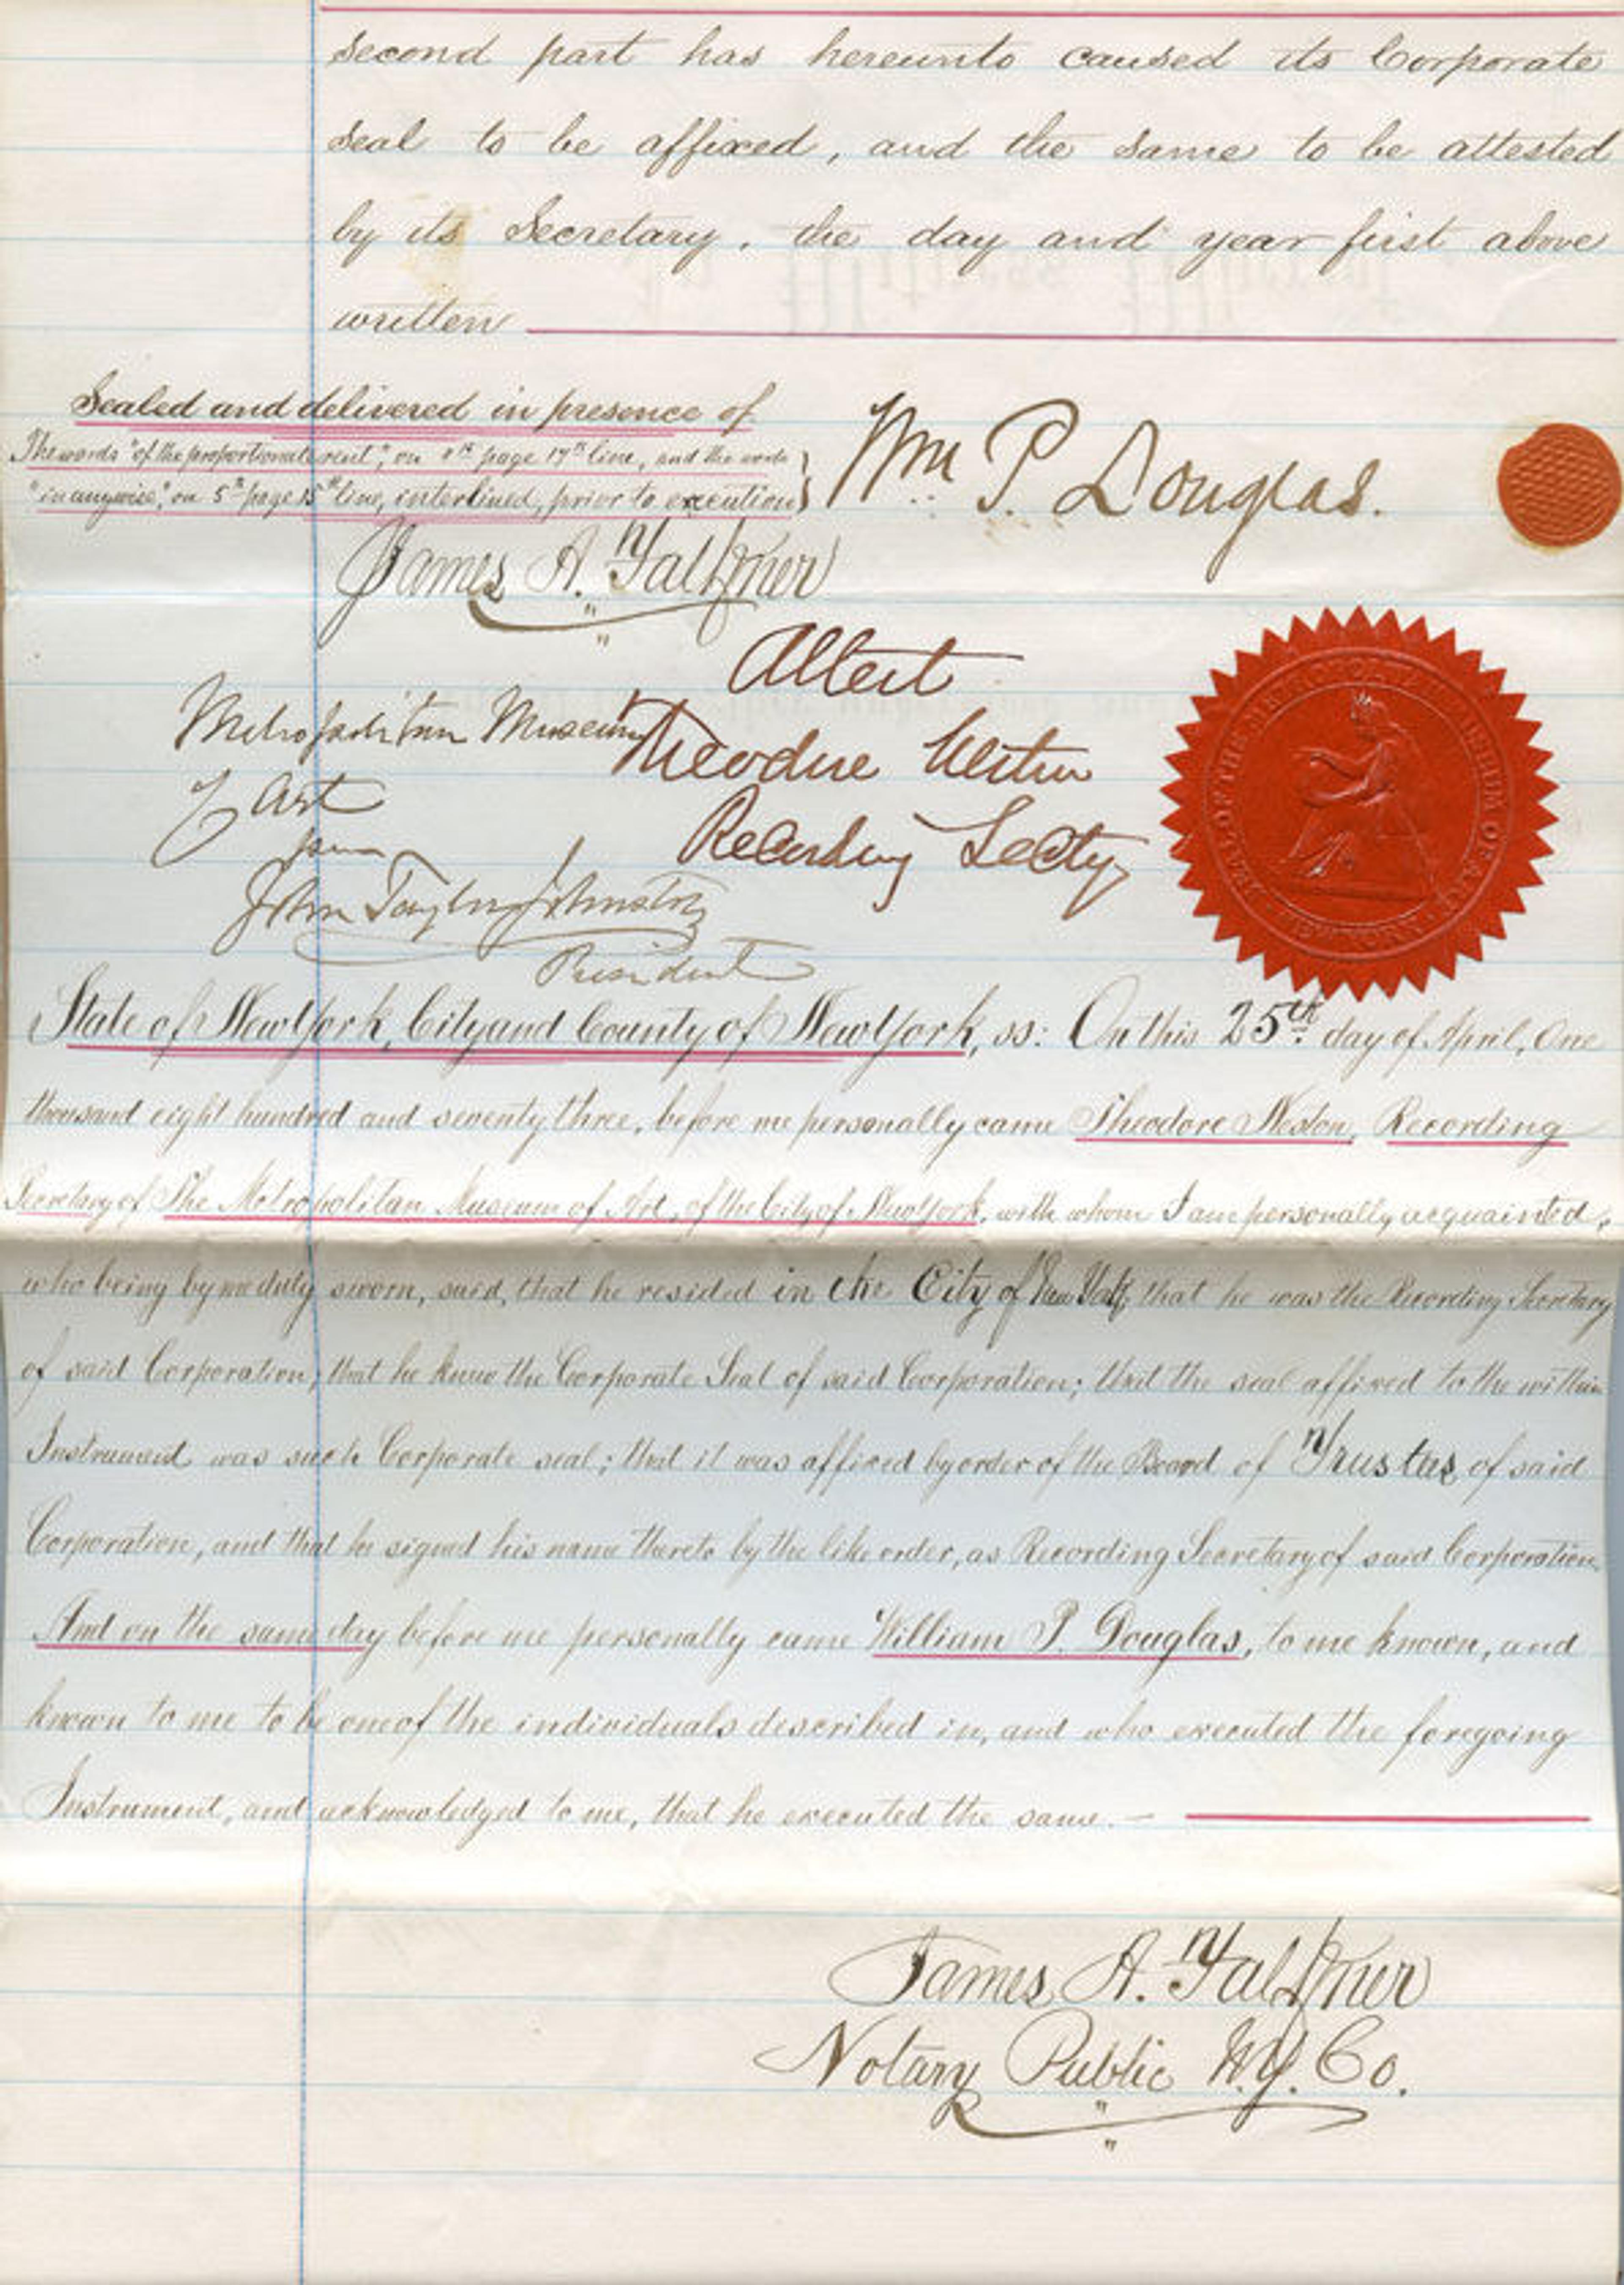 second part has hereunto caused its Corporate
seal to be affixed, and the same to be attested
by its Secretary, the day and year first above
written
Sealed and delivered in presence of
The words "of the proportionate rent," on 4th page 17th line, and the words
"in anywise," on 5th page 15th line, interlined, prior to execution
Wm P. Douglas.
James A. Falkner
Attest
Metropolitan Museum
of Art
Theodore Weston
Recording Secty
John Taylor Johnston
President
State of New York, City and County of New York, ss: On this 25th day of April, One
thousand eight hundred and seventy three, before me personally came Theodore Weston, Recording
Secretary of The Metropolitan Museum of Art, of the City of New York, with whom I am personally acquainted,
who being by me duly sworn, said, that he resided in the City of New York, that he was the Recording Secretary
of said Corporation; that he knew the Corporate Seal of said Corporation; that the seal affixed to the within
Instrument was such Corporate seal; that it was affixed by order of the Board of Trustees of said
Corporation, and that he signed his name thereto by the like order, as Recording Secretary of said Corporation.
And on the same day before me personally came William P. Douglas, to me known, and
known to me to be one of the individuals described in, and who executed the foregoing
Instrument, and acknowledged to me, that he executed the same.—
James A. Falkner
Notary Public N.Y. Co.